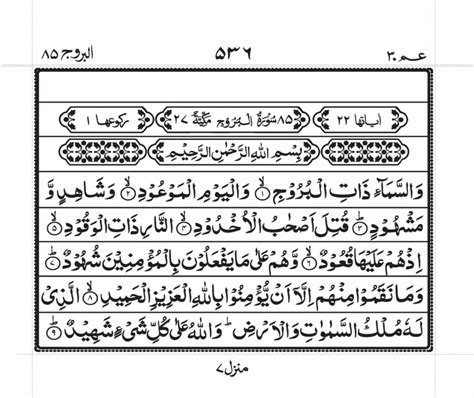 عم ٣٠ ٥٣٦ البروج ٨٥
اٰیاتها ٢٢ ٨٥ سُوْرَةُ الْبُرُوْجِ مَكِّیَّةٌ ٢٧ رکوعها ١
بِسْمِ اللهِ الرَّحْمٰنِ الرَّحِیْمِ
وَالسَّمَآءِ ذَاتِ الْبُرُوْجِ ۙ﴿١﴾ وَالْیَوْمِ الْمَوْعُوْدِ ۙ﴿٢﴾ وَشَاهِدٍ وَّ
مَشْهُوْدٍ ؕ﴿٣﴾ قُتِلَ اَصْحٰبُ الْاُخْدُوْدِ ۙ﴿٤﴾ النَّارِ ذَاتِ الْوَقُوْدِ ۙ﴿٥﴾
اِذْهُمْ عَلَیْهَا قُعُوْدٌ ۙ﴿٦﴾ وَّهُمْ عَلٰی مَایَفْعَلُوْنَ بِالْمُؤْمِنِیْنَ شُهُوْدٌ ؕ﴿٧﴾
وَمَا نَقَمُوْا مِنْهُمْ اِلَّاۤ اَنْ یُّؤْمِنُوْا بِاللهِ الْعَزِیْزِ الْحَمِیْدِ ۙ﴿٨﴾ الَّذِیْ
لَهٗ مُلْكُ السَّمٰوٰتِ وَالْاَرْضِ ؕ وَاللهُ عَلٰی كُلِّ شَیْءٍ شَهِیْدٌ ؕ﴿٩﴾
منزل ٧